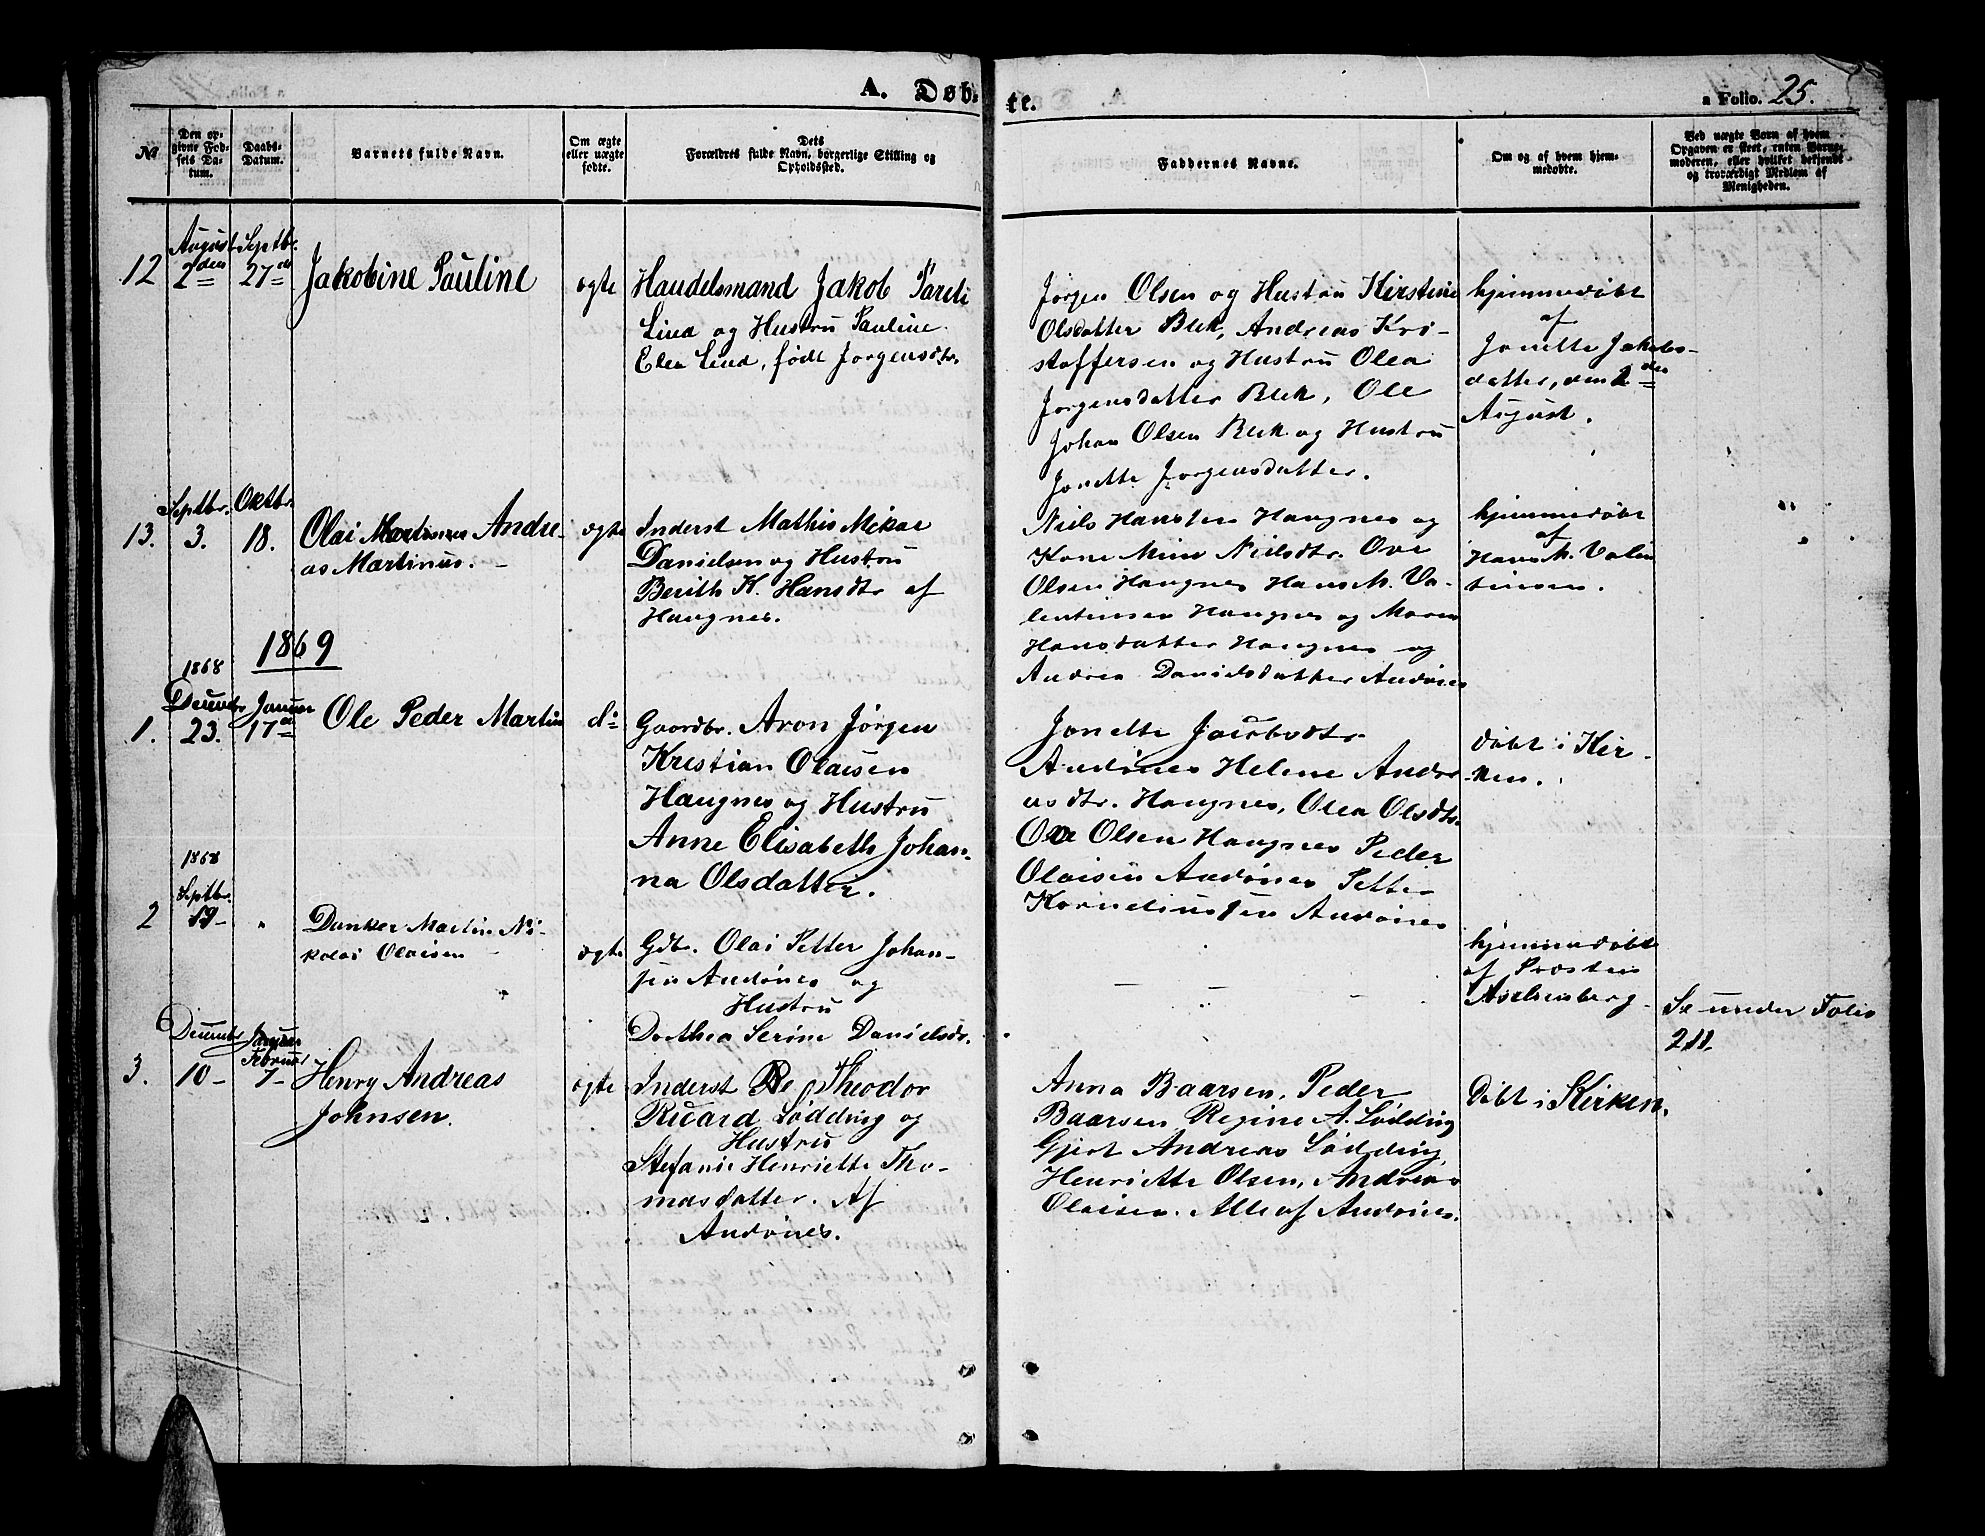 A. Døb-
te.
a Folio. 25.
No
Den op-
givne Fød-
sels Da-
tum.
Daabs-
Datum.
Barnets fulde Navn.
Om ægte
eller uægte
født.
Dets
Forældres fulde Navn, borgerlige Stilling og
Opholdssted.
Faddernes Navne.
Om og af hvem hjem-
medøbt.
Ved uægte Born af hvem
Opgaven er skeet, enten Barne-
moderen, eller hvilket bekjendt
og troværdigt Medlem af
Menigheden.
12
August
2den
Septbr.
27de
Jakobine Pauline
ægte
Handelsmand Jakob Pareli
Lind og Hustru Pauline
Elen Lind, født Jørgensdtr.
Jørgen Olsen og Hustru Kirstine
Olsdatter Blek, Andreas Kri-
stoffersen og Hustru Olea
Jørgensdatter Blek, Ole
Johan Olsen Blek og Hustru
Jonette Jørgensdatter.
hjemmedøbt
af
Jonette Jakobs-
datter, den 2den
August.
13.
Septbr.
3.
Oktbr.
18.
Olai Martinus Andre-
as Martinus.
ægte
Inderst Mathis Mikal
Danielsen og Hustru
Berith K. Hansdtr af
Haugnes.
Niels Hansen Haugnes og
Kone Mine Nielsdtr. Ove
Olsen Haugnes Hans M. Va-
lentinsen Haugnes og Maren
Hansdatter Haugnes og
Andrea Danielsdatter Andønes
hjemmedøbt
af
Hans M. Valen
tinsen.
1869
1.
1868
Decembr
23.
Januar
17de
Ole Peder Martin
do
Gaardbr. Aron Jørgen
Kristian Olaisen
Haugnes og Hustru
Anne Elisabeth Johan-
na Olsdatter.
Jonette Jacobsdtr
Andønes Helene Andre
asdtr. Haugnes, Olea Olsdtr.
Ove Olsen Haugnes Peder
Olaisen Andønes Petter
Korneliussen Andønes
døbt i Kir-
ken.
2
1868
Septbr.
19
"
Danker Martin Ni-
kolai Olaisen
ægte
Gdbr. Olai Petter Johan-
sen Andønes og
Hustru
Dorthea Serine Danielsdr.
hjemmedøbt
af Præsten
Aschenberg
Se under Folio
211.
3.
Decembr
10
Januar
Februar
7
Henry Andreas
Johnsen.
ægte
Inderst Pe Theodor
Ricard Lødding og
Hustru
Stefanie Henriette Tho-
masdatter. Af
Andønes.
Anna Baarsen, Peder
Baarsen Regine A. Lødding
Gjert Andreas Lødding
Henriette Olsen, Andreas
Olaisen. Alle af Andønes.
Døbt i Kirken.